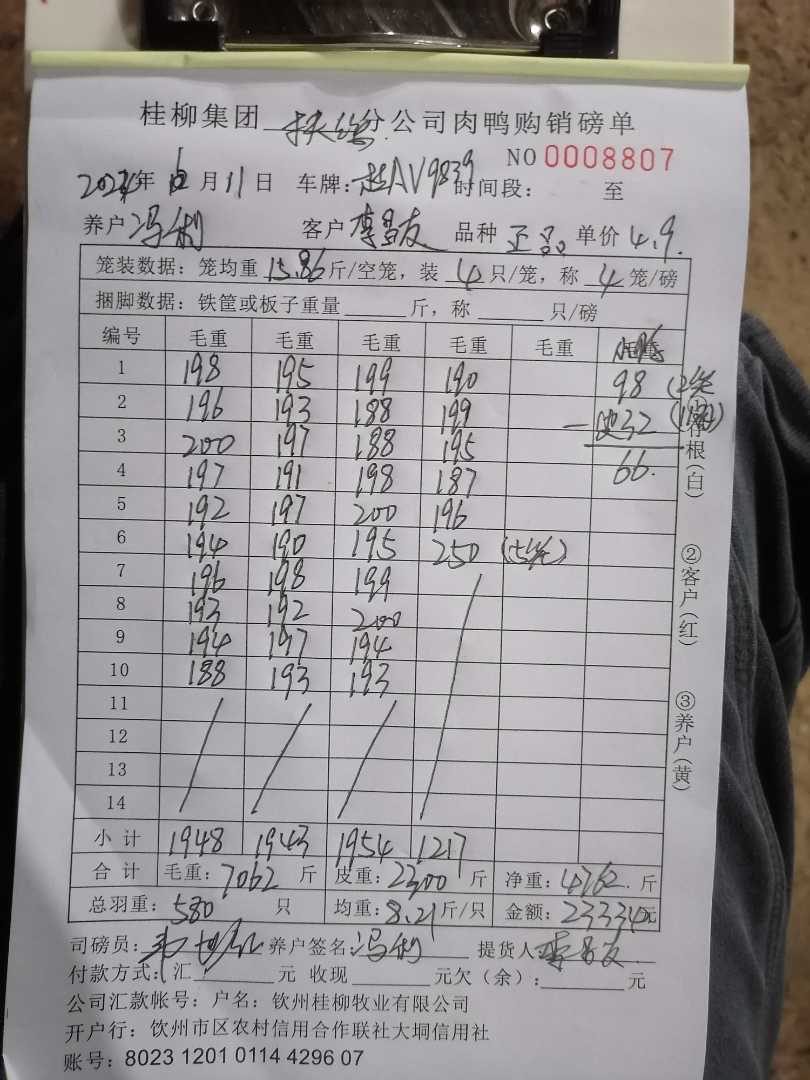 桂柳集团 扶绥 分公司肉鸭购销磅单
NO 0008807
2024年 12 月 11 日 车牌: AV9839 时间段: 至
养户 冯利 客户 李昌友 品种 正品 单价 4.9
笼装数据: 笼均重 15.86 斤/空笼, 装 4 只/笼, 称 4 笼/磅
捆脚数据: 铁筐或板子重量 斤, 称 只/磅
编号 毛重 毛重 毛重 毛重 毛重
1 198 195 199 190 98 (2笼
2 196 193 188 199 - 32
3 200 197 188 195 66.
4 197 191 198 187
5 192 197 200 196
6 194 190 195 250 (5笼)
7 196 198 199
8 193 192 200
9 194 197 194
10 188 193 193
11
12
13
14
小 计 1948 1943 1954 1217
合 计 毛重: 7062 斤 皮重: 2300 斤 净重: 4762. 斤
总羽重: 580 只 均重: 8.21 斤/只 金额: 23334元
司磅员: 养户签名: 冯利 提货人 李昌友
付款方式: 汇 元 收现 元欠(余): 元
公司汇款帐号: 户名: 钦州桂柳牧业有限公司
开户行: 钦州市区农村信用合作联社大垌信用社
账号: 8023 1201 0114 4296 07
存根(白)
②客户(红)
③养户(黄)